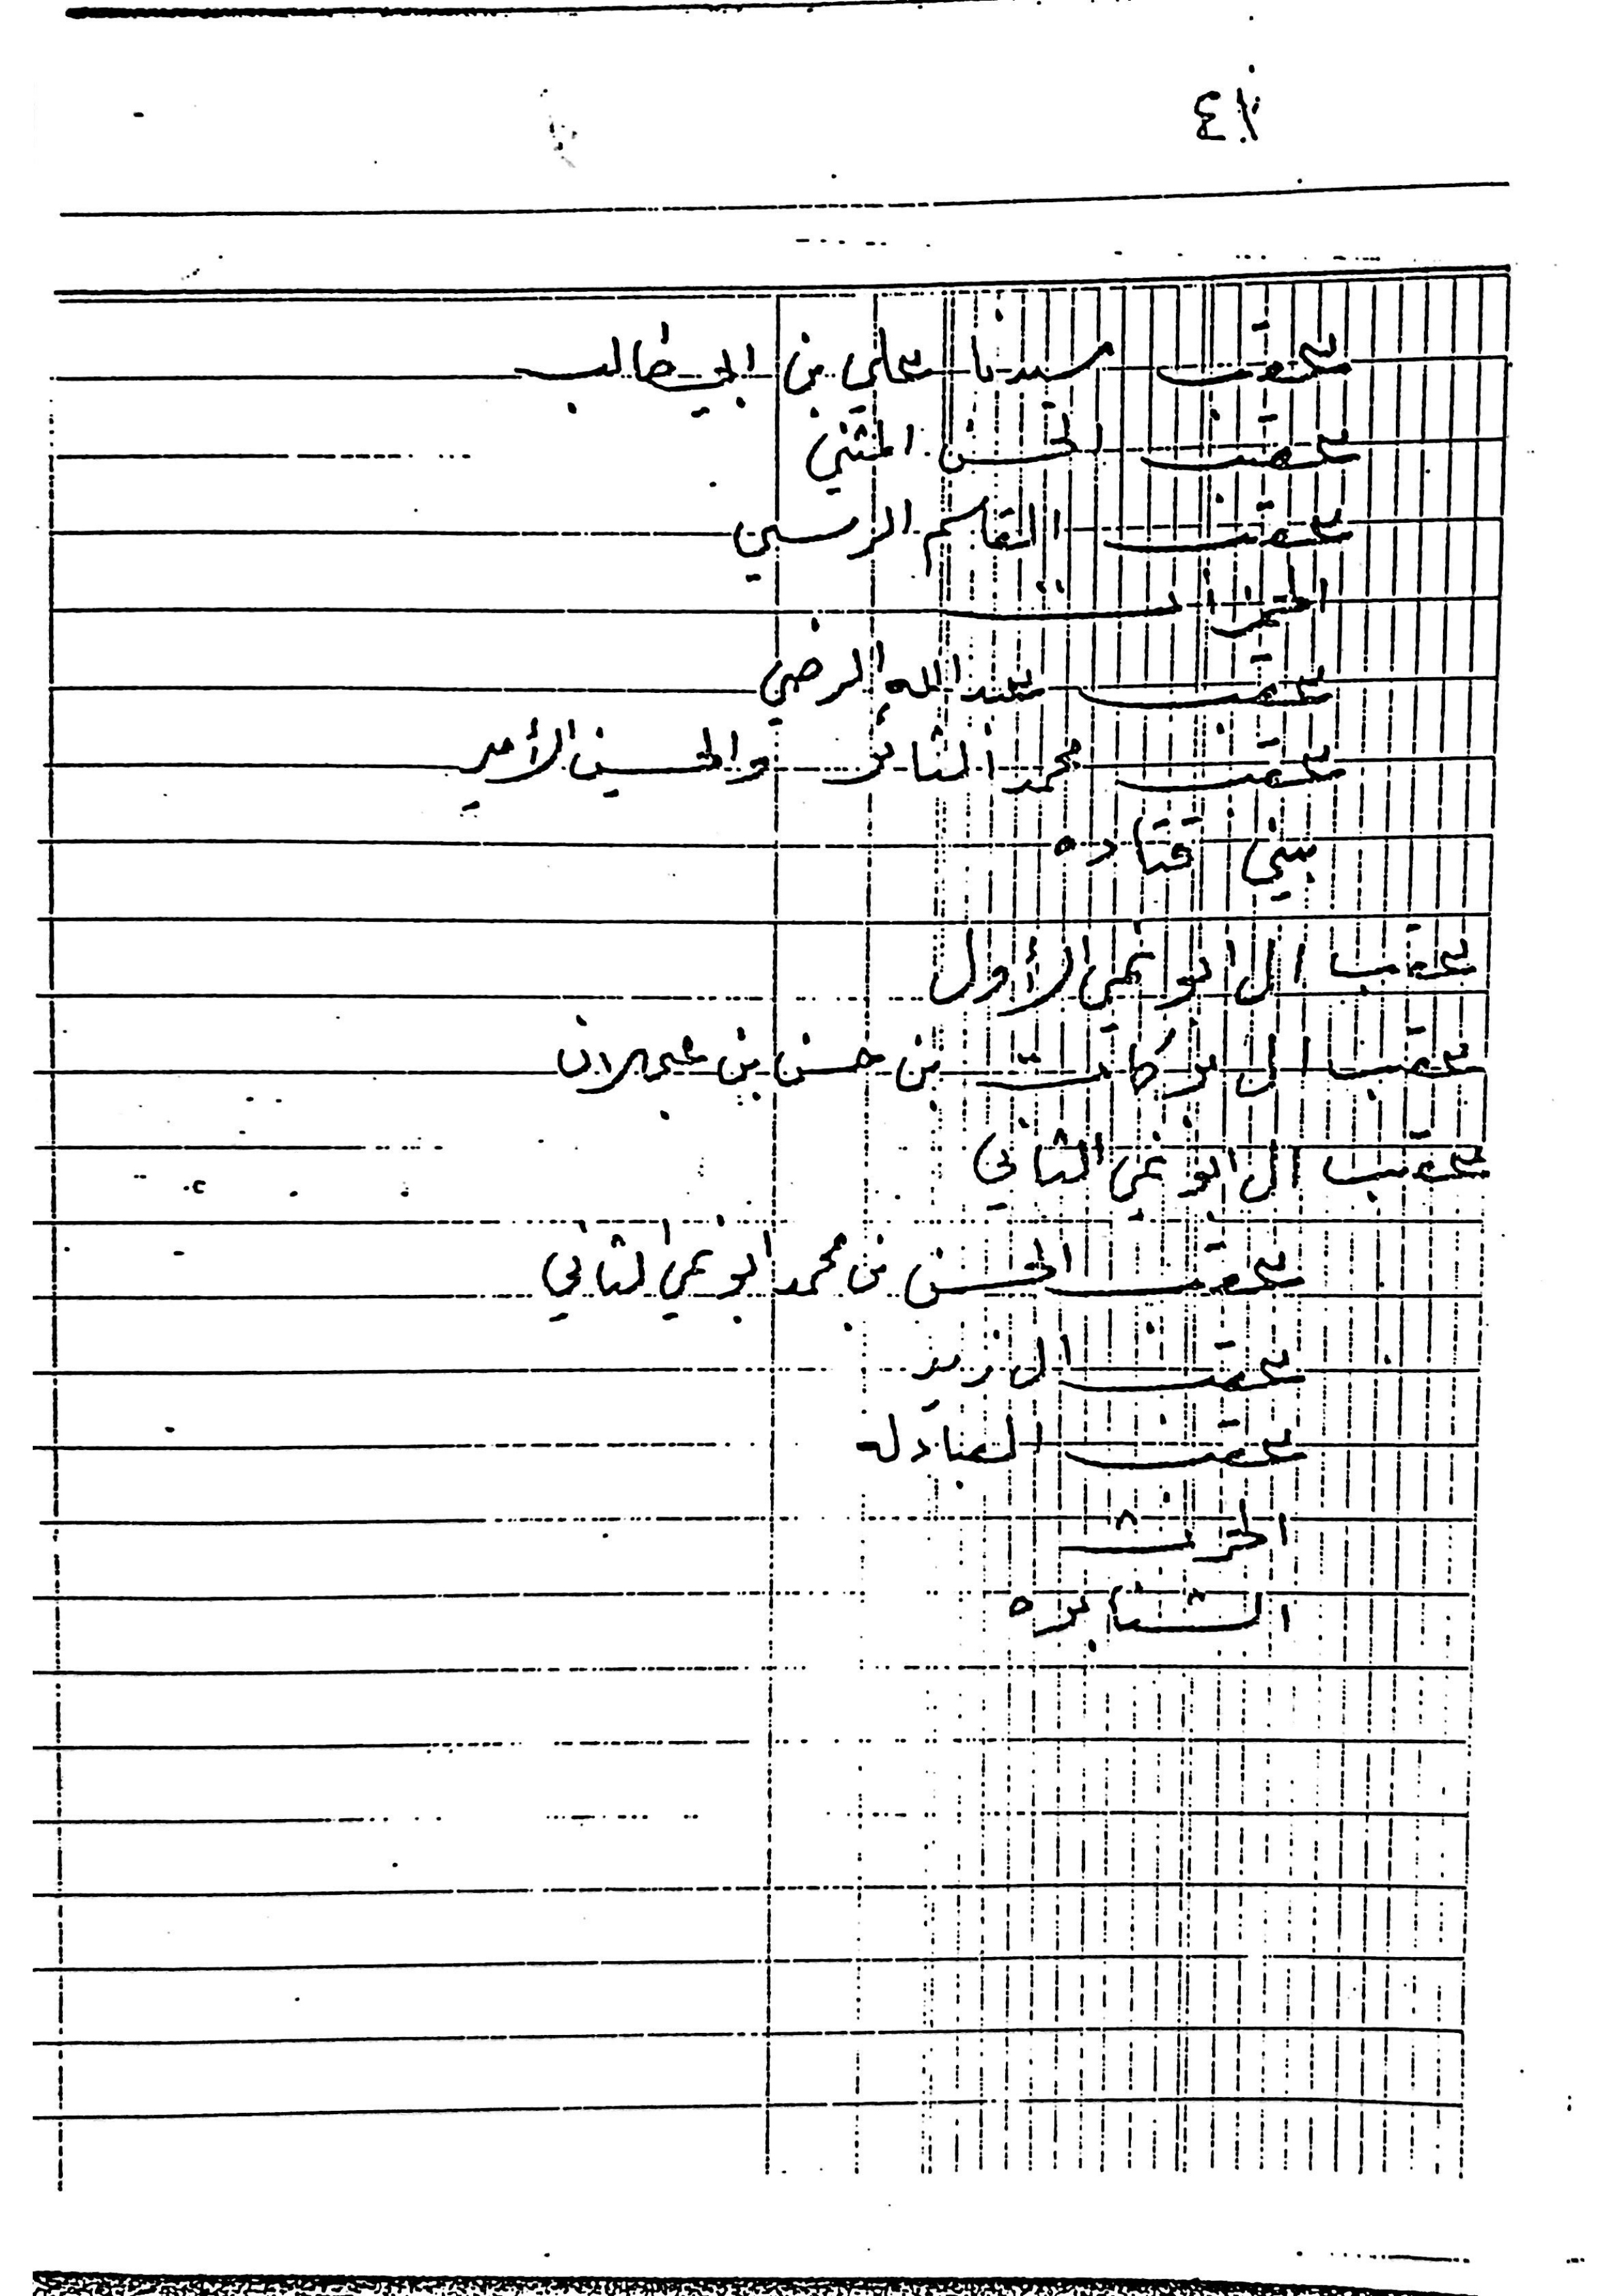 عقب سيدنا علي بن ابي طالب
عقب الحسن المثني
عقب القاسم الرسي
الحمزات
عقب عبد الله الرضي
عقب محمد الثائر والحسين الأمير
بني قتاده
عقب ال ابو نمي الأول
عقب ال بركات بن حسن بن عجلان
عقب ال ابو نمي الثاني
عقب الحسن بن محمد ابو نمي الثاني
عقب ال زيد
عقب العبادله
الحرث
الشنابره